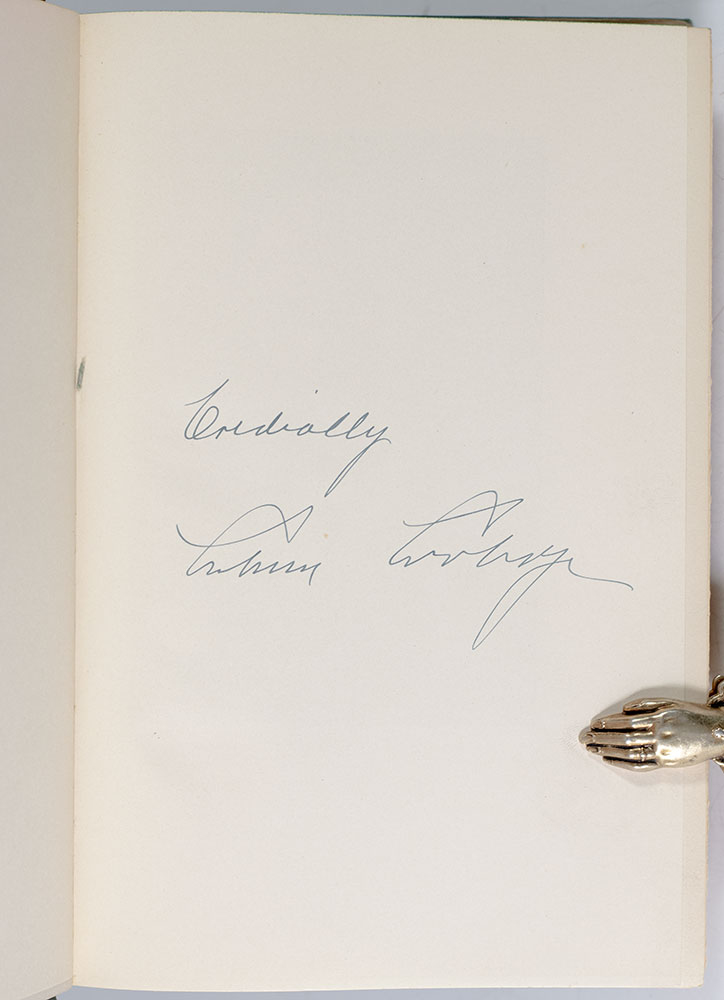 Cordially
Calvin Coolidge